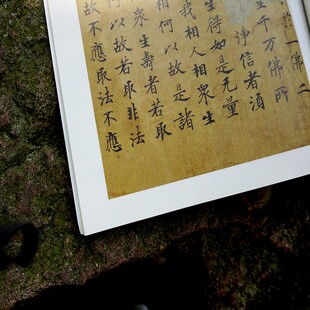 於一佛二
千万佛所
淨信者須
生得如是无量
我相人相眾生
相何以故是諸
眾生壽者若取
何以故若取非法
故不應取法不應